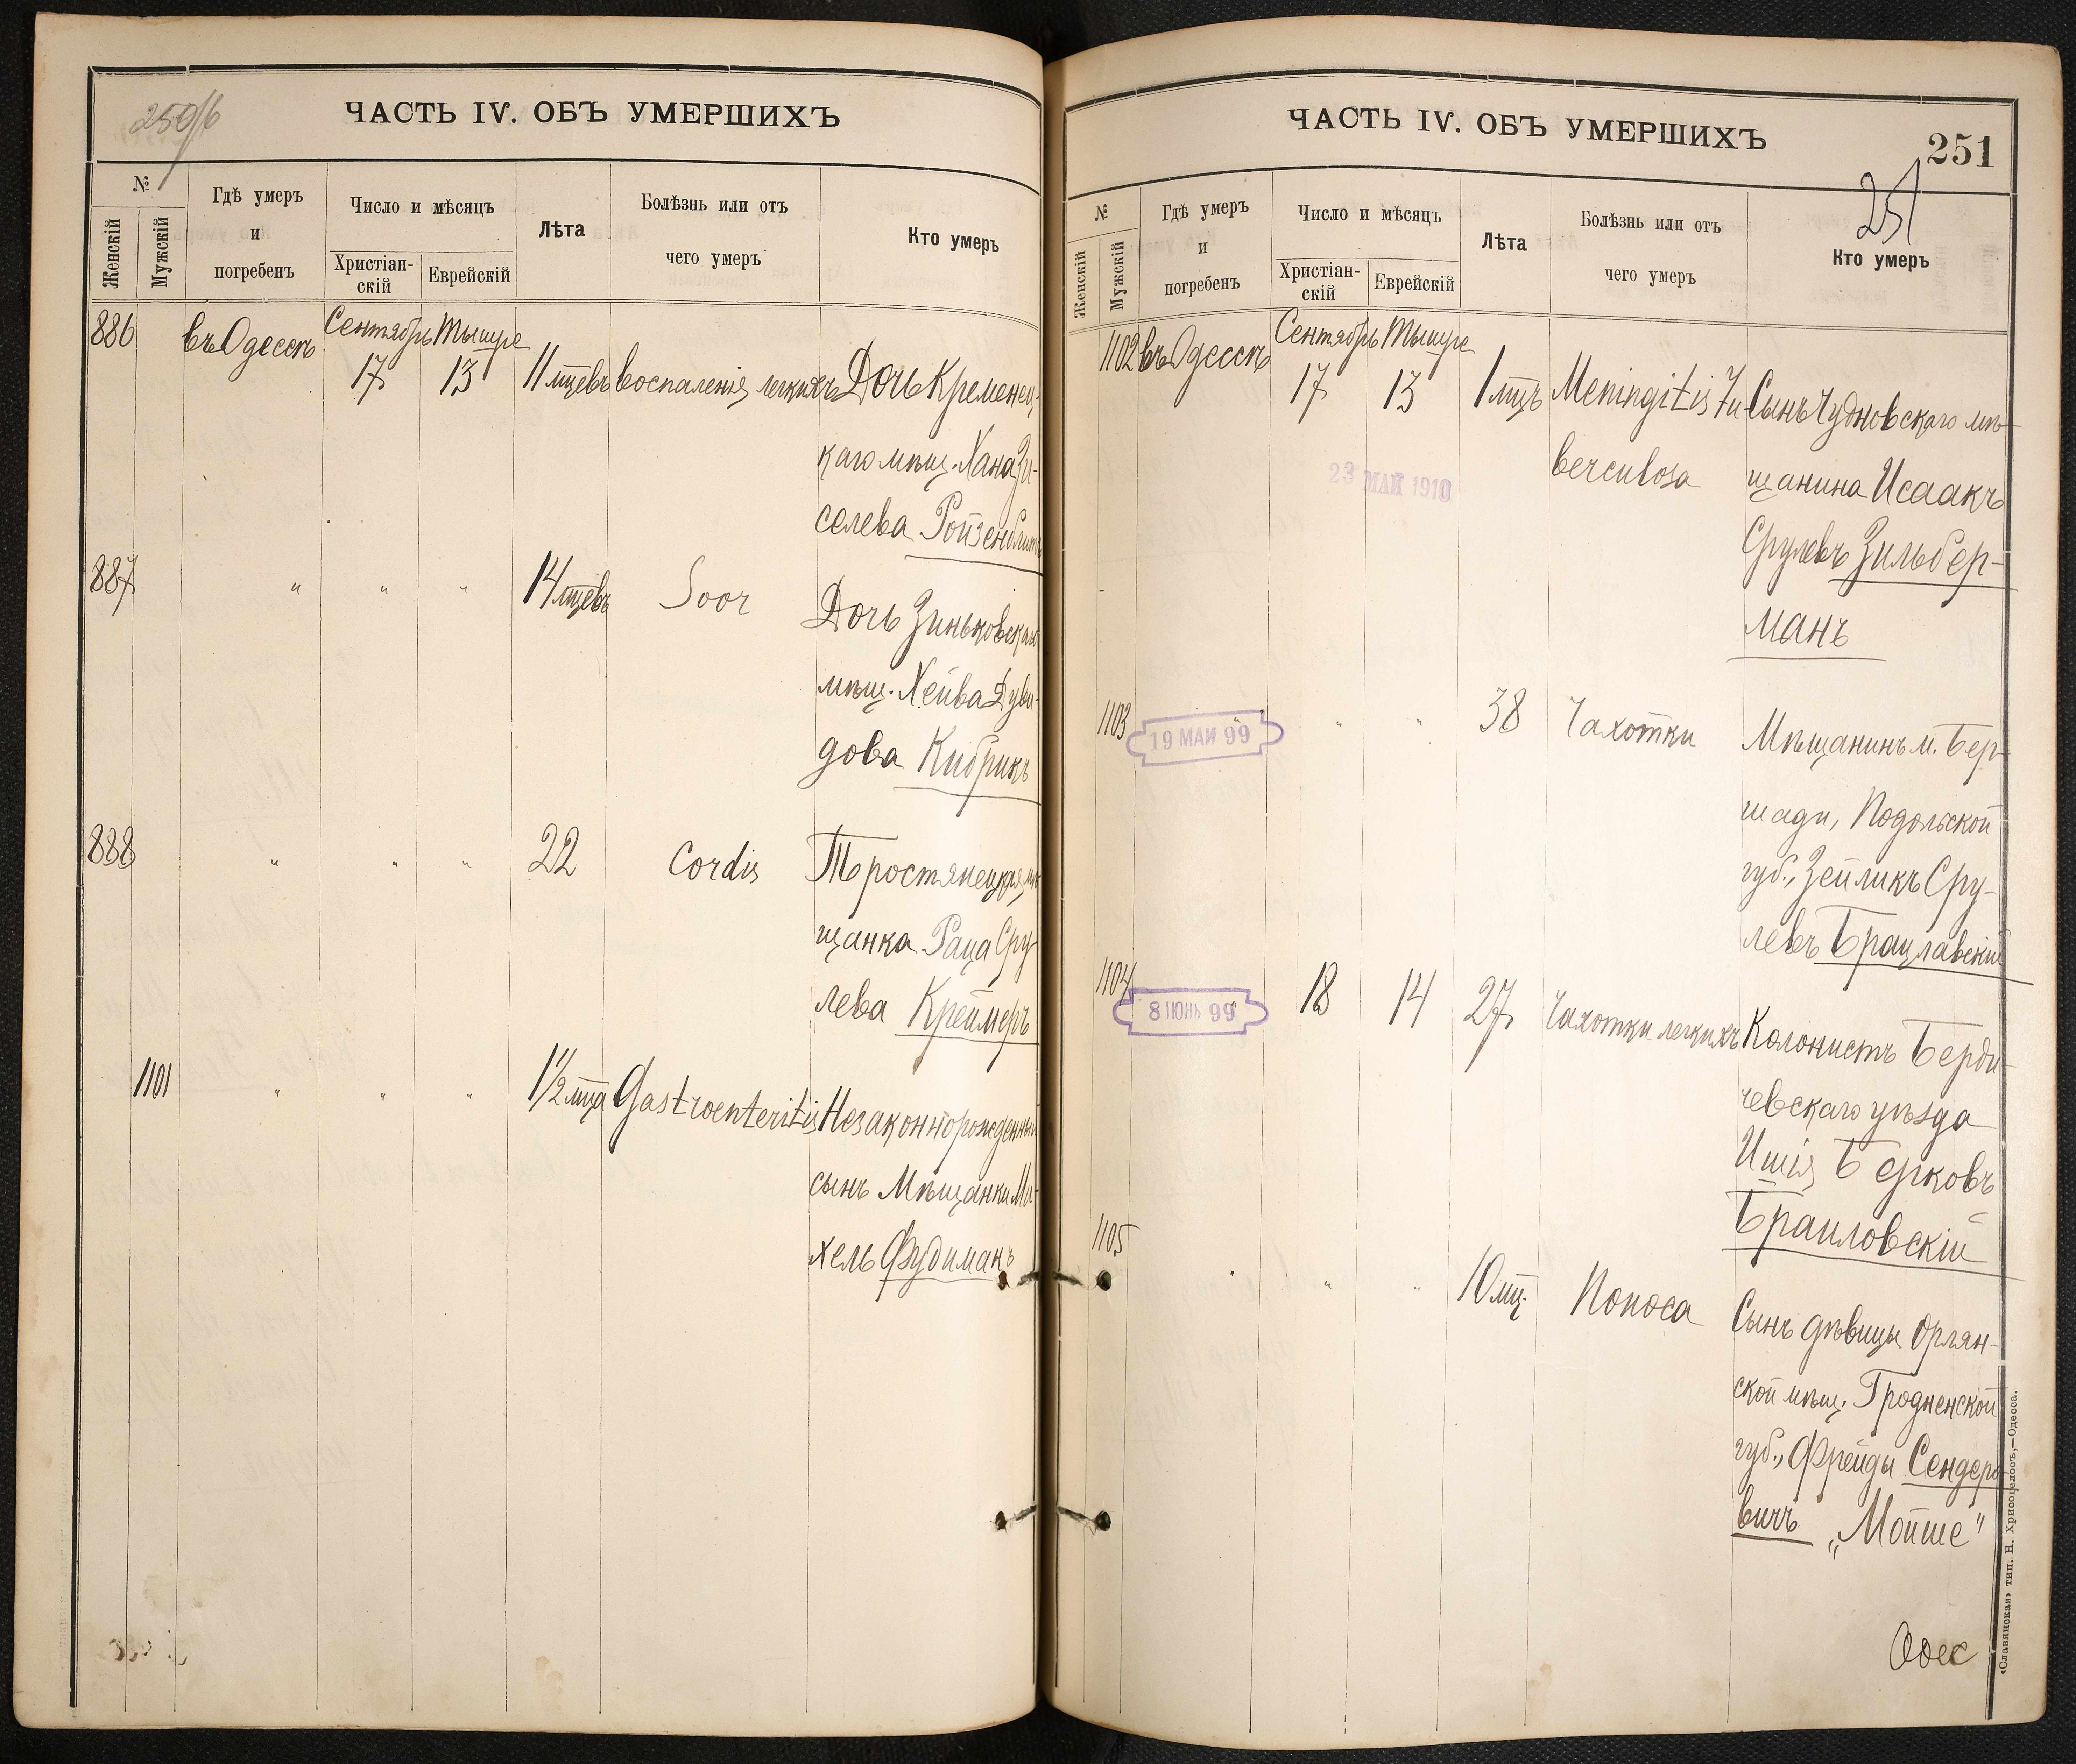 250/б
ЧАСТЬ IV. ОБЪ УМЕРШИХЪ
№
Женскій
Мужскій
Гдѣ умеръ
и
погребенъ
Число и мѣсяцъ
Христіан-
скій
Еврейскій
Лѣта
Болѣзнь или отъ
чего умеръ
Кто умеръ
886 въ Одессѣ Сентябрь 17 Тышре 13 11 мцевъ воспаленія легкихъ Дочь Кременец-
каго мѣщ. Хана Зи-
селева Ройзенблитъ
887 " " " 14 мцевъ Soor Дочь Зиньковскаго
мѣщ. Хейва Дуви-
дова Кибрикъ
888 " " " 22 Cordis Тростянецкая мѣ-
щанка Раца Сру
лева Креймеръ
1101 " " " 1½ мца Gastroenteritis Незаконнорожденный
сынъ Мѣщанки Ми-
хель Фудиманъ
ЧАСТЬ IV. ОБЪ УМЕРШИХЪ
251
251
№
Женскій
Мужскій
Гдѣ умеръ
и
погребенъ
Число и мѣсяцъ
Христіан-
скій
Еврейскій
Лѣта
Болѣзнь или отъ
чего умеръ
Кто умеръ
1102 въ Одессѣ Сентябрь 17 Тышре 13 1 мцъ Meningitis Tu- Сынъ Чудновскаго мѣ-
berculosa щанина Исаакъ
23 МАЙ 1910
Срулевъ Зильбер-
манъ
1103 " " " 38 Чахотки Мѣщанинъ м. Бер-
19 МАЙ 99
шади, Подольской
губ., Зейликъ Сру-
левъ Брацлавскій
1104 " 18 14 27 Чахотки легкихъ Колонистъ Берди-
8 ІЮНЬ 99
чевскаго уѣзда
Ишія Берковъ
Браиловскій
1105 " " " 10 мц. Поноса Сынъ дѣвицы Орлян-
ской мѣщ. Гродненской
губ., Фрейды Сендеро
вичъ „Мойше"
Одес
«Славянская» тип. Н. Хрисогелосъ,—Одесса.